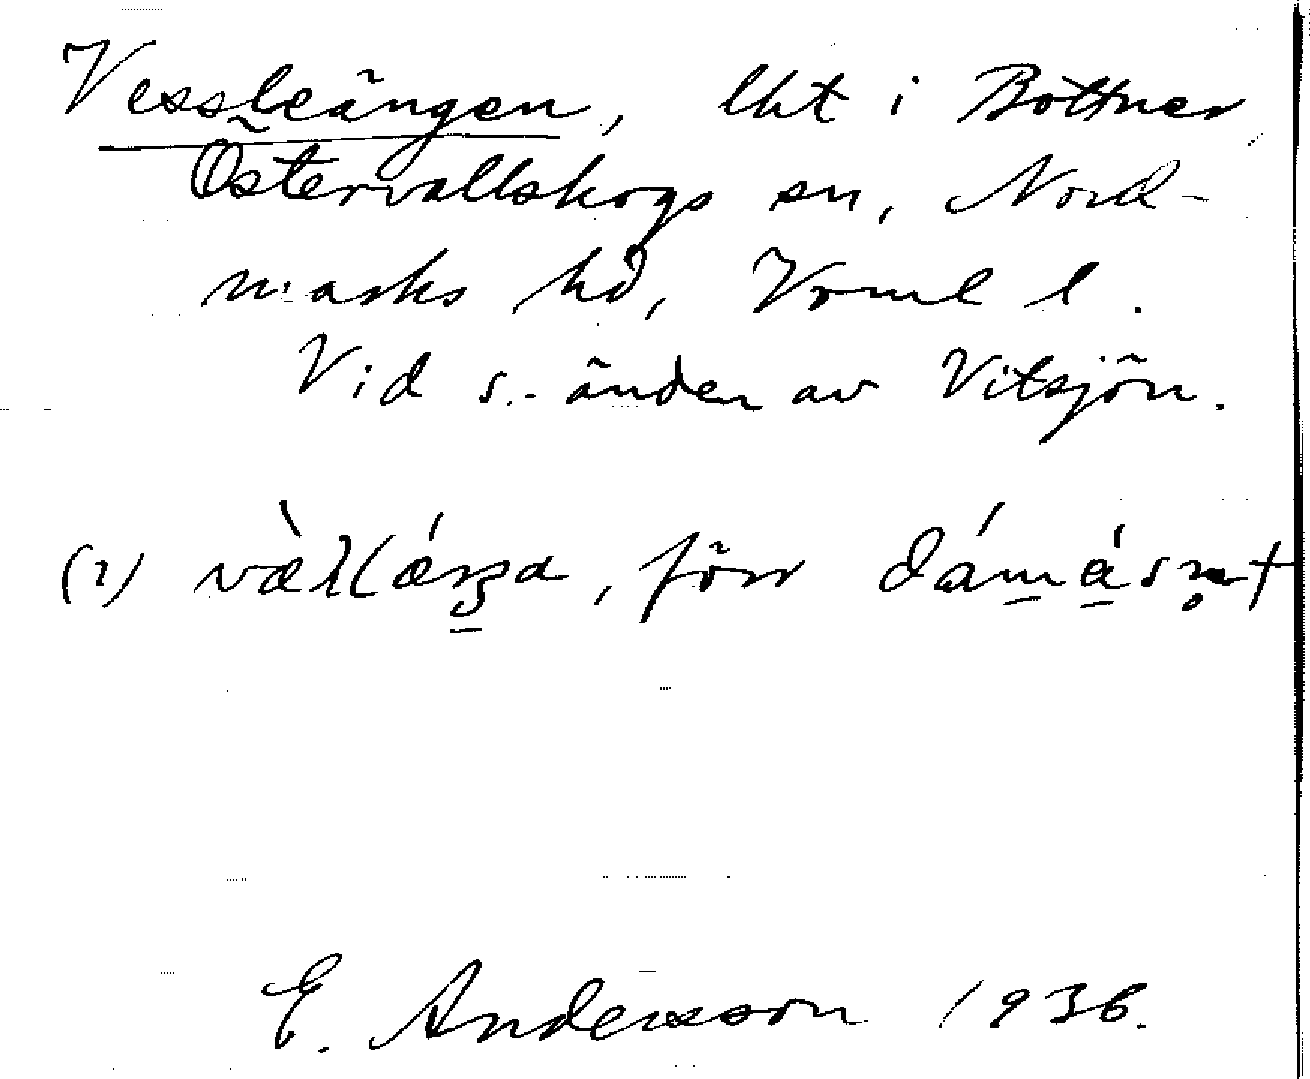 Vessleängen, lht i Bottner
Östervallskogs sn, Nord-
marks hd, Vrml l.
Vid s. änden av Vitsjön.
(1) förr
E. Andersson 1936.